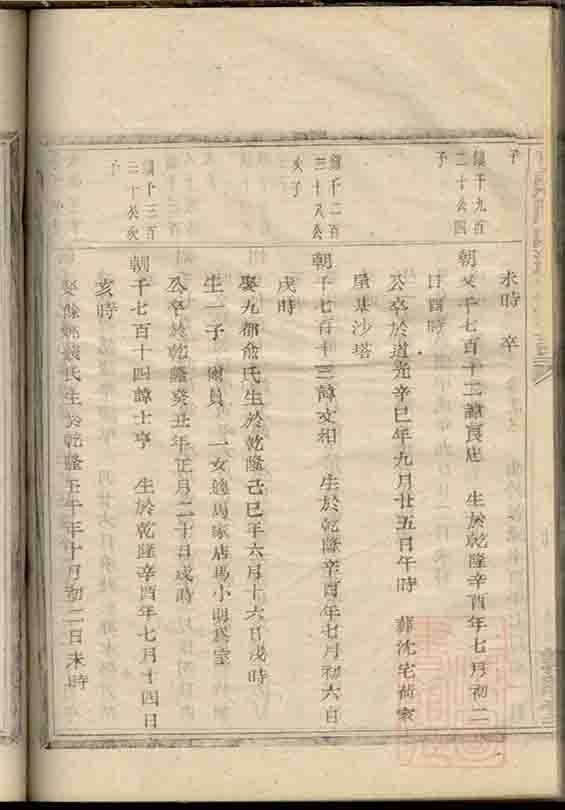 子
未時 卒
鎮千九百
二十公四
子
朝文千七百十二諱良忠 生於乾隆辛酉年七月初二
日酉時
公卒於道光辛巳年九月廿五日午時 葬沈宅
基沙塔
鎮千二百
三十八公
次子
朝千七百十三諱文相 生於乾隆辛酉年七月初六日
戌時
娶九都俞氏生於乾隆己巳年六月十六日戌時
生一子 員 一女適馬家店馬小明為室
公卒於乾隆癸丑年正月二十日戌時
鎮千三百
二十公次
子
朝千七百十四諱士亨 生於乾隆辛酉年七月十四日
亥時
娶餘姚 氏生於乾隆壬午年十月初二日未時